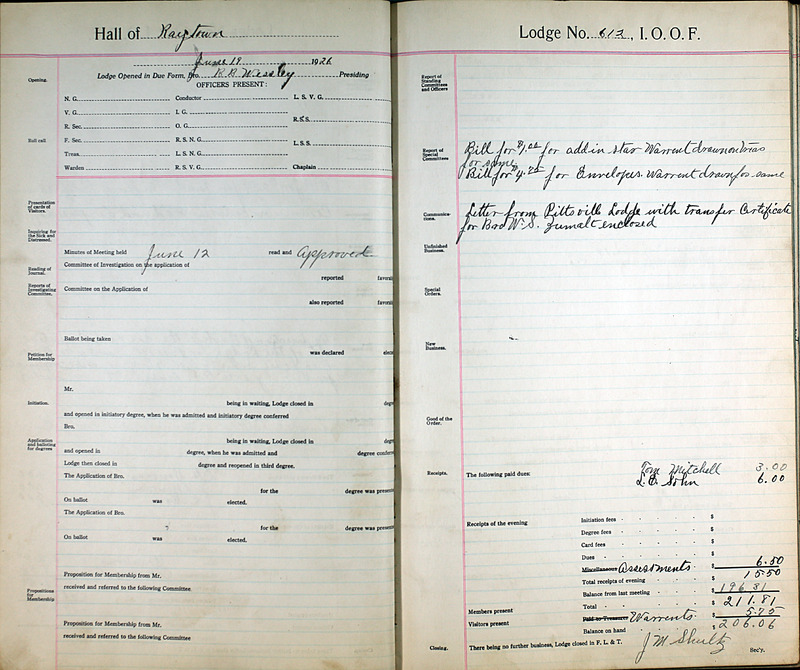 Hall of Raytown
June 19 1926
Lodge Opened in Due Form, Bro. R. B. Wessley Presiding
OFFICERS PRESENT:
Opening.
N. G. Conductor L. S. V. G.
V. G. I. G.
R. S. S.
R. Sec. O. G.
Roll call
F. Sec. R. S. N. G.
L. S. S.
Treas. L. S. N. G.
Warden R. S. V. G. Chaplain
Presentation of cards of Visitors.
Inquiring for the Sick and Distressed.
Minutes of Meeting held June 12 read and Approved
Reading of Journal.
Committee of Investigation on the application of
reported favora
Reports of Investigating Committee.
Committee on the Application of
also reported favora
Ballot being taken
was declared elec
Petition for Membership
Mr.
Initiation.
being in waiting, Lodge closed in degr
and opened in initiatory degree, when he was admitted and initiatory degree conferred
Bro.
Application and balloting for degrees
being in waiting, Lodge closed in degr
and opened in degree, when he was admitted and degree confer
Lodge then closed in degree and reopened in third degree.
The Application of Bro.
for the degree was presen
On ballot was elected.
The Application of Bro.
for the degree was presen
On ballot was elected.
Proposition for Membership from Mr.
received and referred to the following Committee.
Propositions for Membership
Proposition for Membership from Mr.
received and referred to the following Committee
Lodge No. 613, I. O. O. F.
Report of Standing Committees and Officers
Report of Special Committees
Bill for $1.00 for add in star Warrent drawn on
for same
Bill for $4.75 for Envelopes. Warrent drawn for same
Communications.
Letter from Pittsvill Lodge with transfer Certificate
for Bro W. S. Zumalt enclosed
Unfinished Business.
Special Orders.
New Business.
Good of the Order.
Receipts.
The following paid dues:
Tom Mitchell 3.00
L. C. John 6.00
Receipts of the evening
Initiation fees $
Degree fees $
Card fees $
Dues $
Miscellaneous Assessments $ 6.50
Total receipts of evening $ 15.50
Balance from last meeting $ 196.31
Total $ 211.81
Members present
Paid to Treasurer Warrents $ 5.75
Visitors present
Balance on hand $ 206.06
Closing.
There being no further business, Lodge closed in F. L. & T. J M Shultz Sec'y.